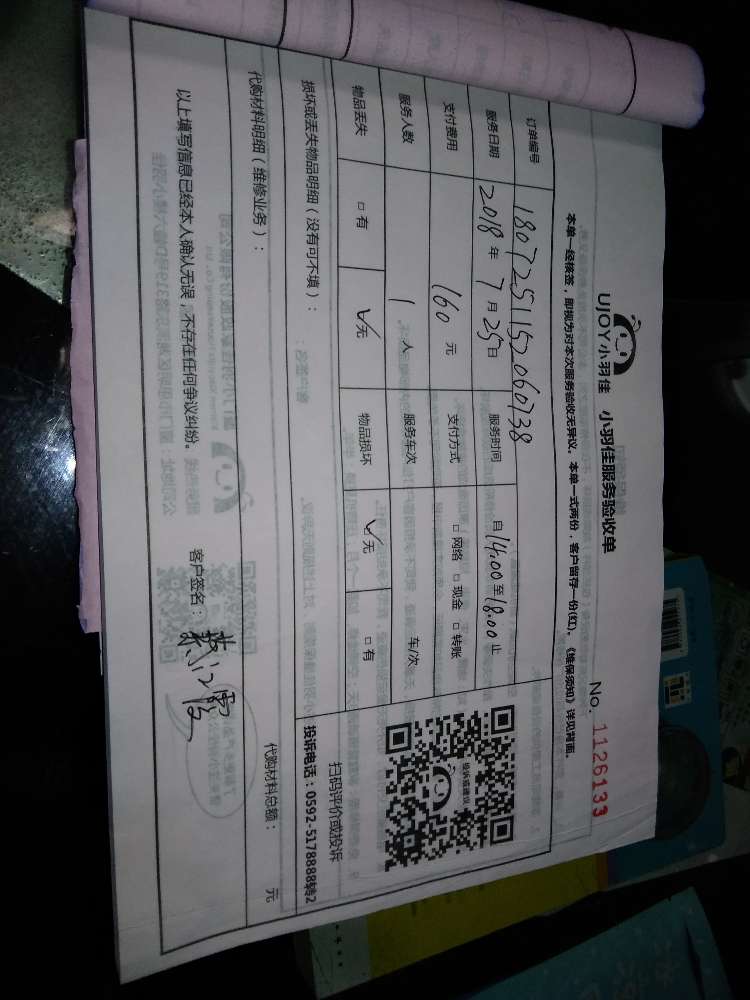 UJOY小羽佳 小羽佳服务验收单
No. 1126133
本单一经核签，即视为对本次服务验收无异议。本单一式两份，客户留存一份(红)。《维保须知》详见背面。
订单编号 1807251152060738
服务日期 2018年7月25日 服务时间 自14:00至18:00止
支付费用 160元 支付方式 □网络 □现金 □转账
服务人数 1人 服务车次 车/次
物品丢失 □有 ☑无 物品损坏 ☑无 □有
投诉或建议
扫码评价或投诉
投诉电话：0592-5178888转2
损坏或丢失物品明细（没有可不填）：
代购材料明细（维修业务）：
代购材料总额： 元
以上填写信息已经本人确认无误，不存在任何争议纠纷。
客户签名：